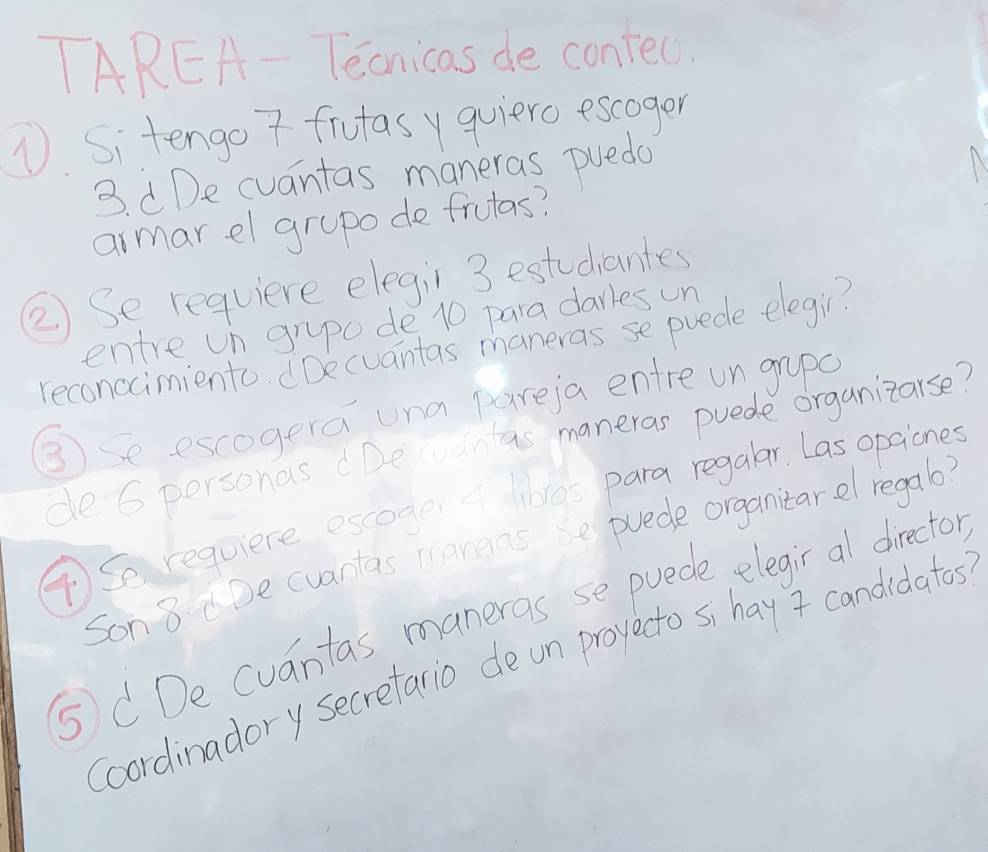 TAREA - Técnicas de conteo.
①. Si tengo 7 frutas y quiero escoger
3. ¿De cuántas maneras puedo
armar el grupo de frutas?
② Se requiere elegir 3 estudiantes
entre un grupo de 10 para darles un
reconocimiento. ¿De cuántas maneras se puede elegir?
③ Se escogerá una pareja entre un grupo
de 6 personas. ¿De cuantas maneras puede organizarse?
④ Se requiere escoger 4 libros para regalar. Las opciones
son 8. ¿De cuantas maneras se puede organizar el regalo?
⑤ ¿De cuántas maneras se puede elegir al director,
coordinador y secretario de un proyecto si hay 7 candidatos?